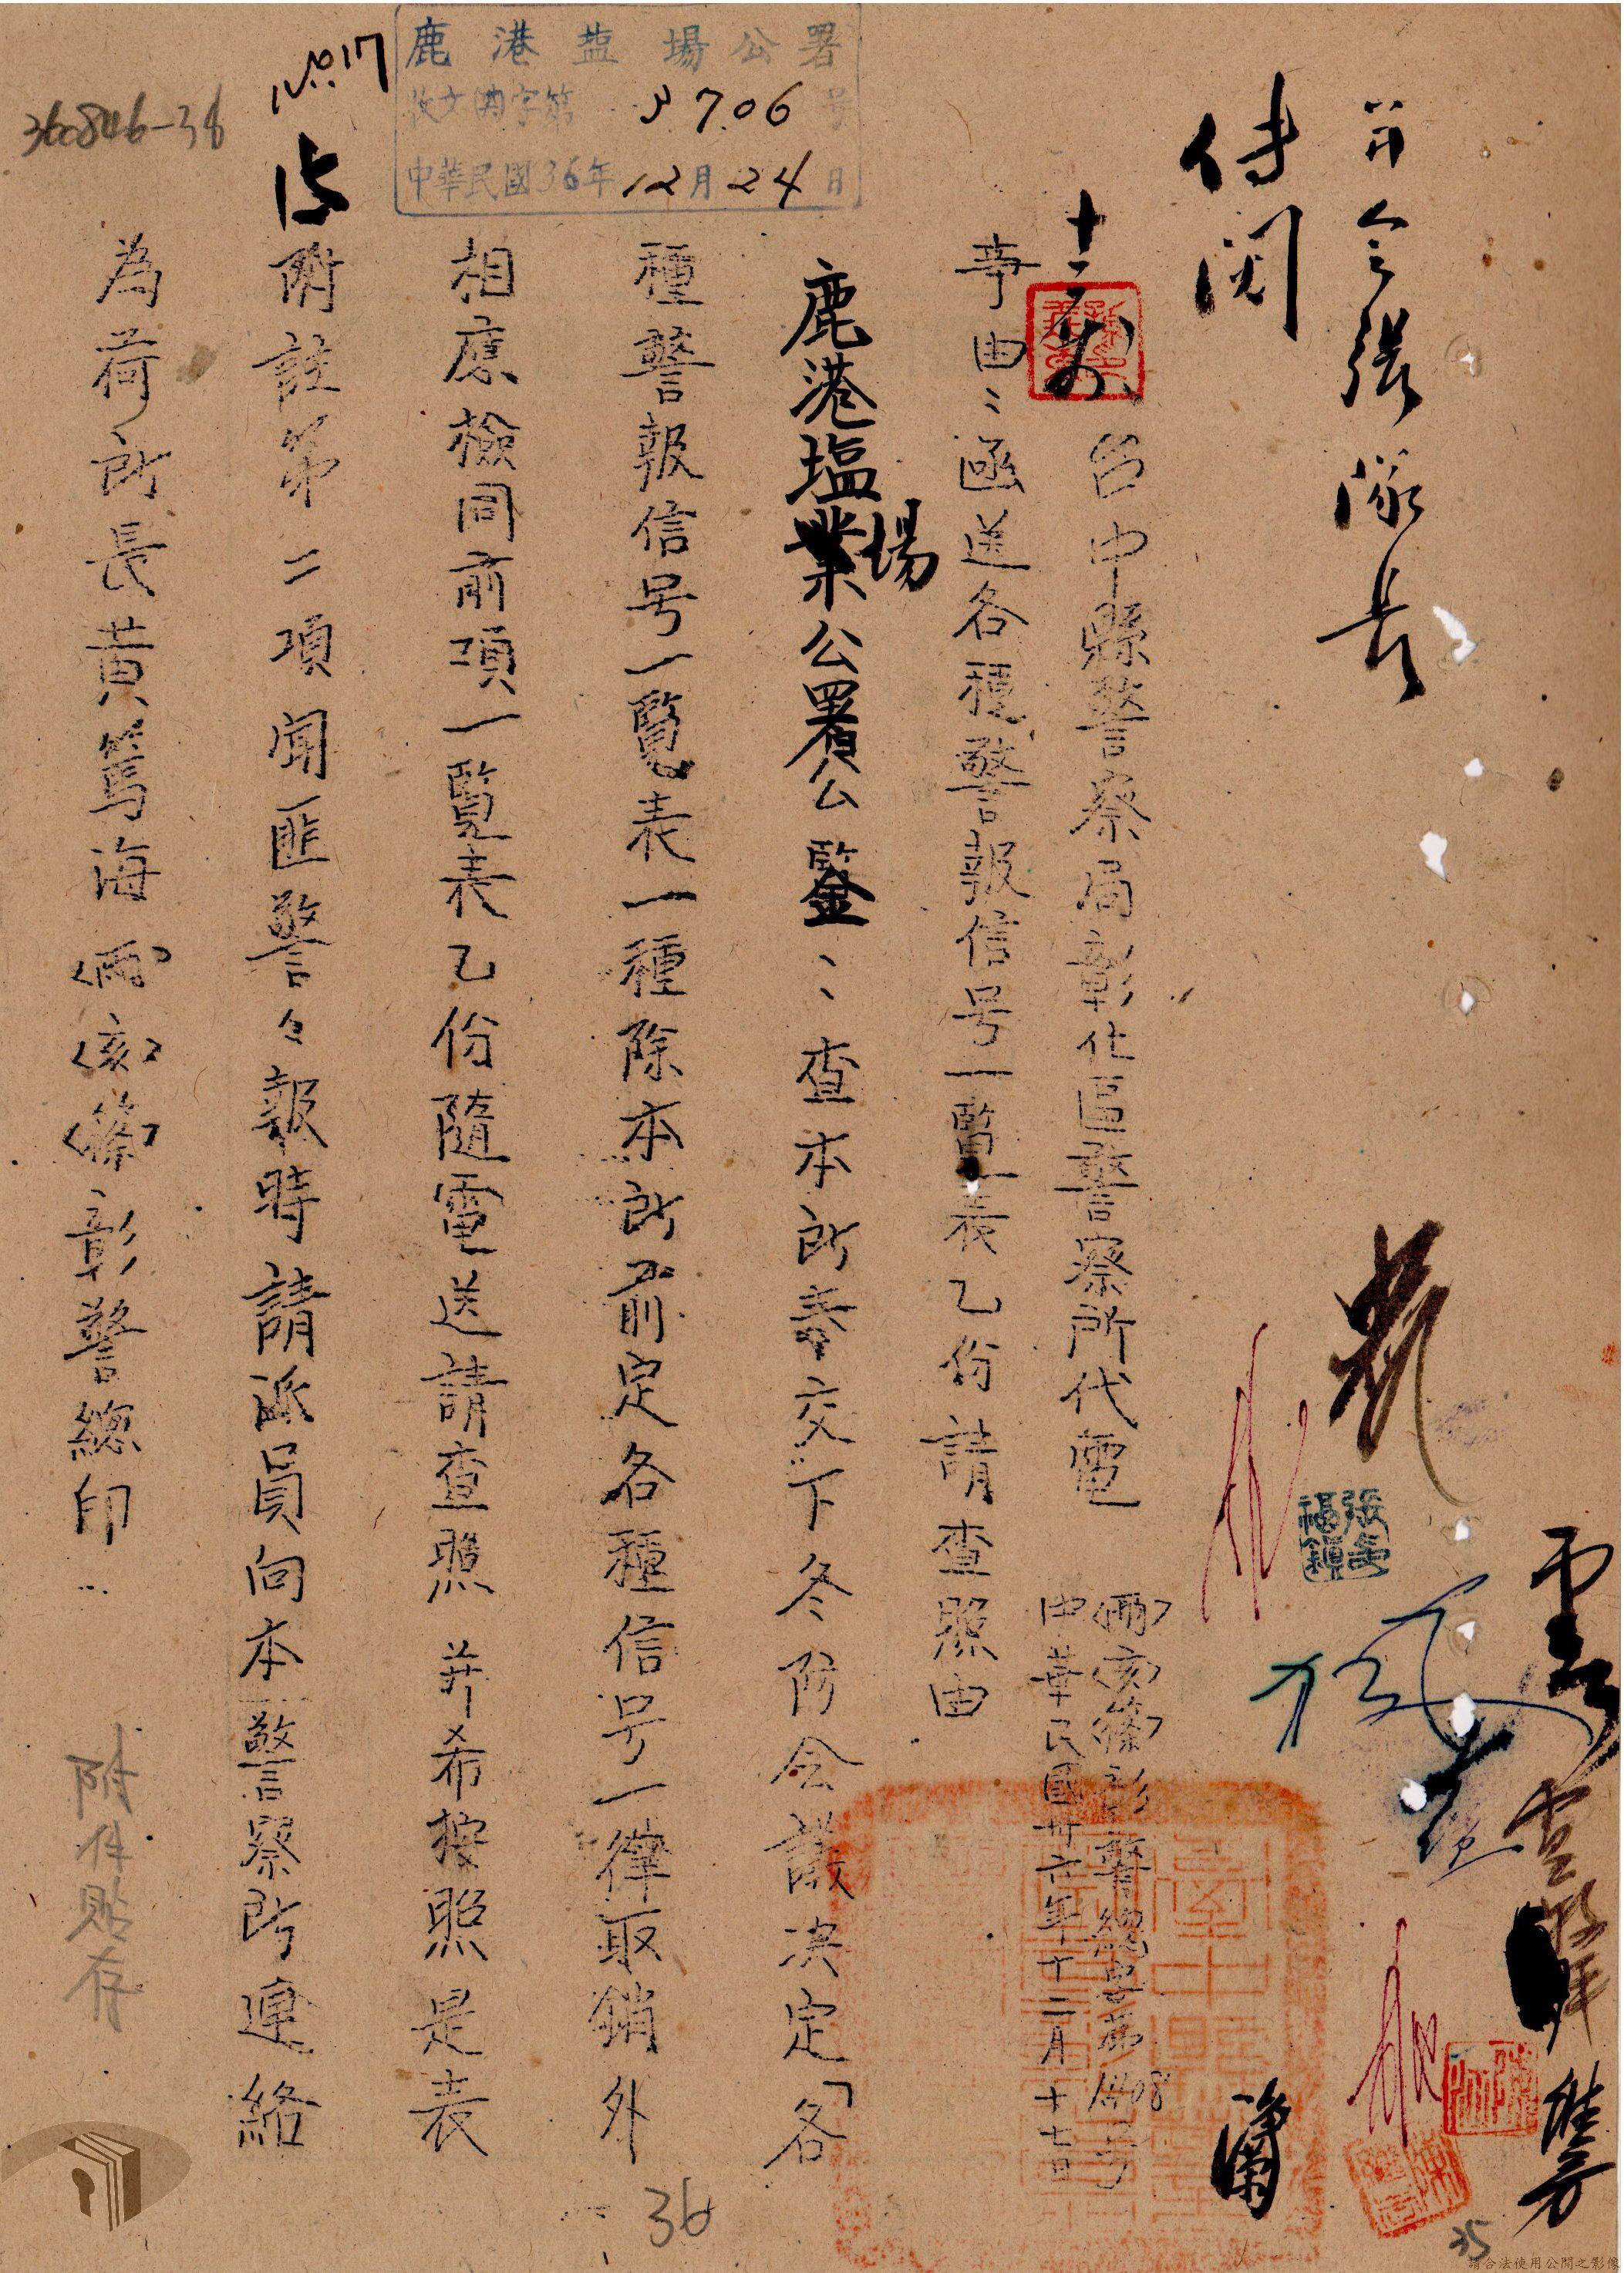 并令張隊長
傳閱
台中縣警察局彰化區警察所代電
(卅六)亥篠彰警總字第1408号
中華民國卅六年十二月十七日
事由:函送各種警報信号一覽表乙份請查照由
鹿港塩場公署公鑒:查本所奉交下冬防会議決定「各
種警報信号一覽表一種除本所前定各種信号一律取銷外
相應檢同前項一覽表乙份隨電送請查照并希按照是表
附註第二項聞匪警々報時請派員向本警察所連絡
為荷所長黃篤海(卅六)(亥)(篠)彰警總印
附件貼存
鹿港塩場公署
收文 字第 3706 号
中華民國36年12月24日
No.17
360846-38
張福鎮
36
35
請合法使用公開之影像